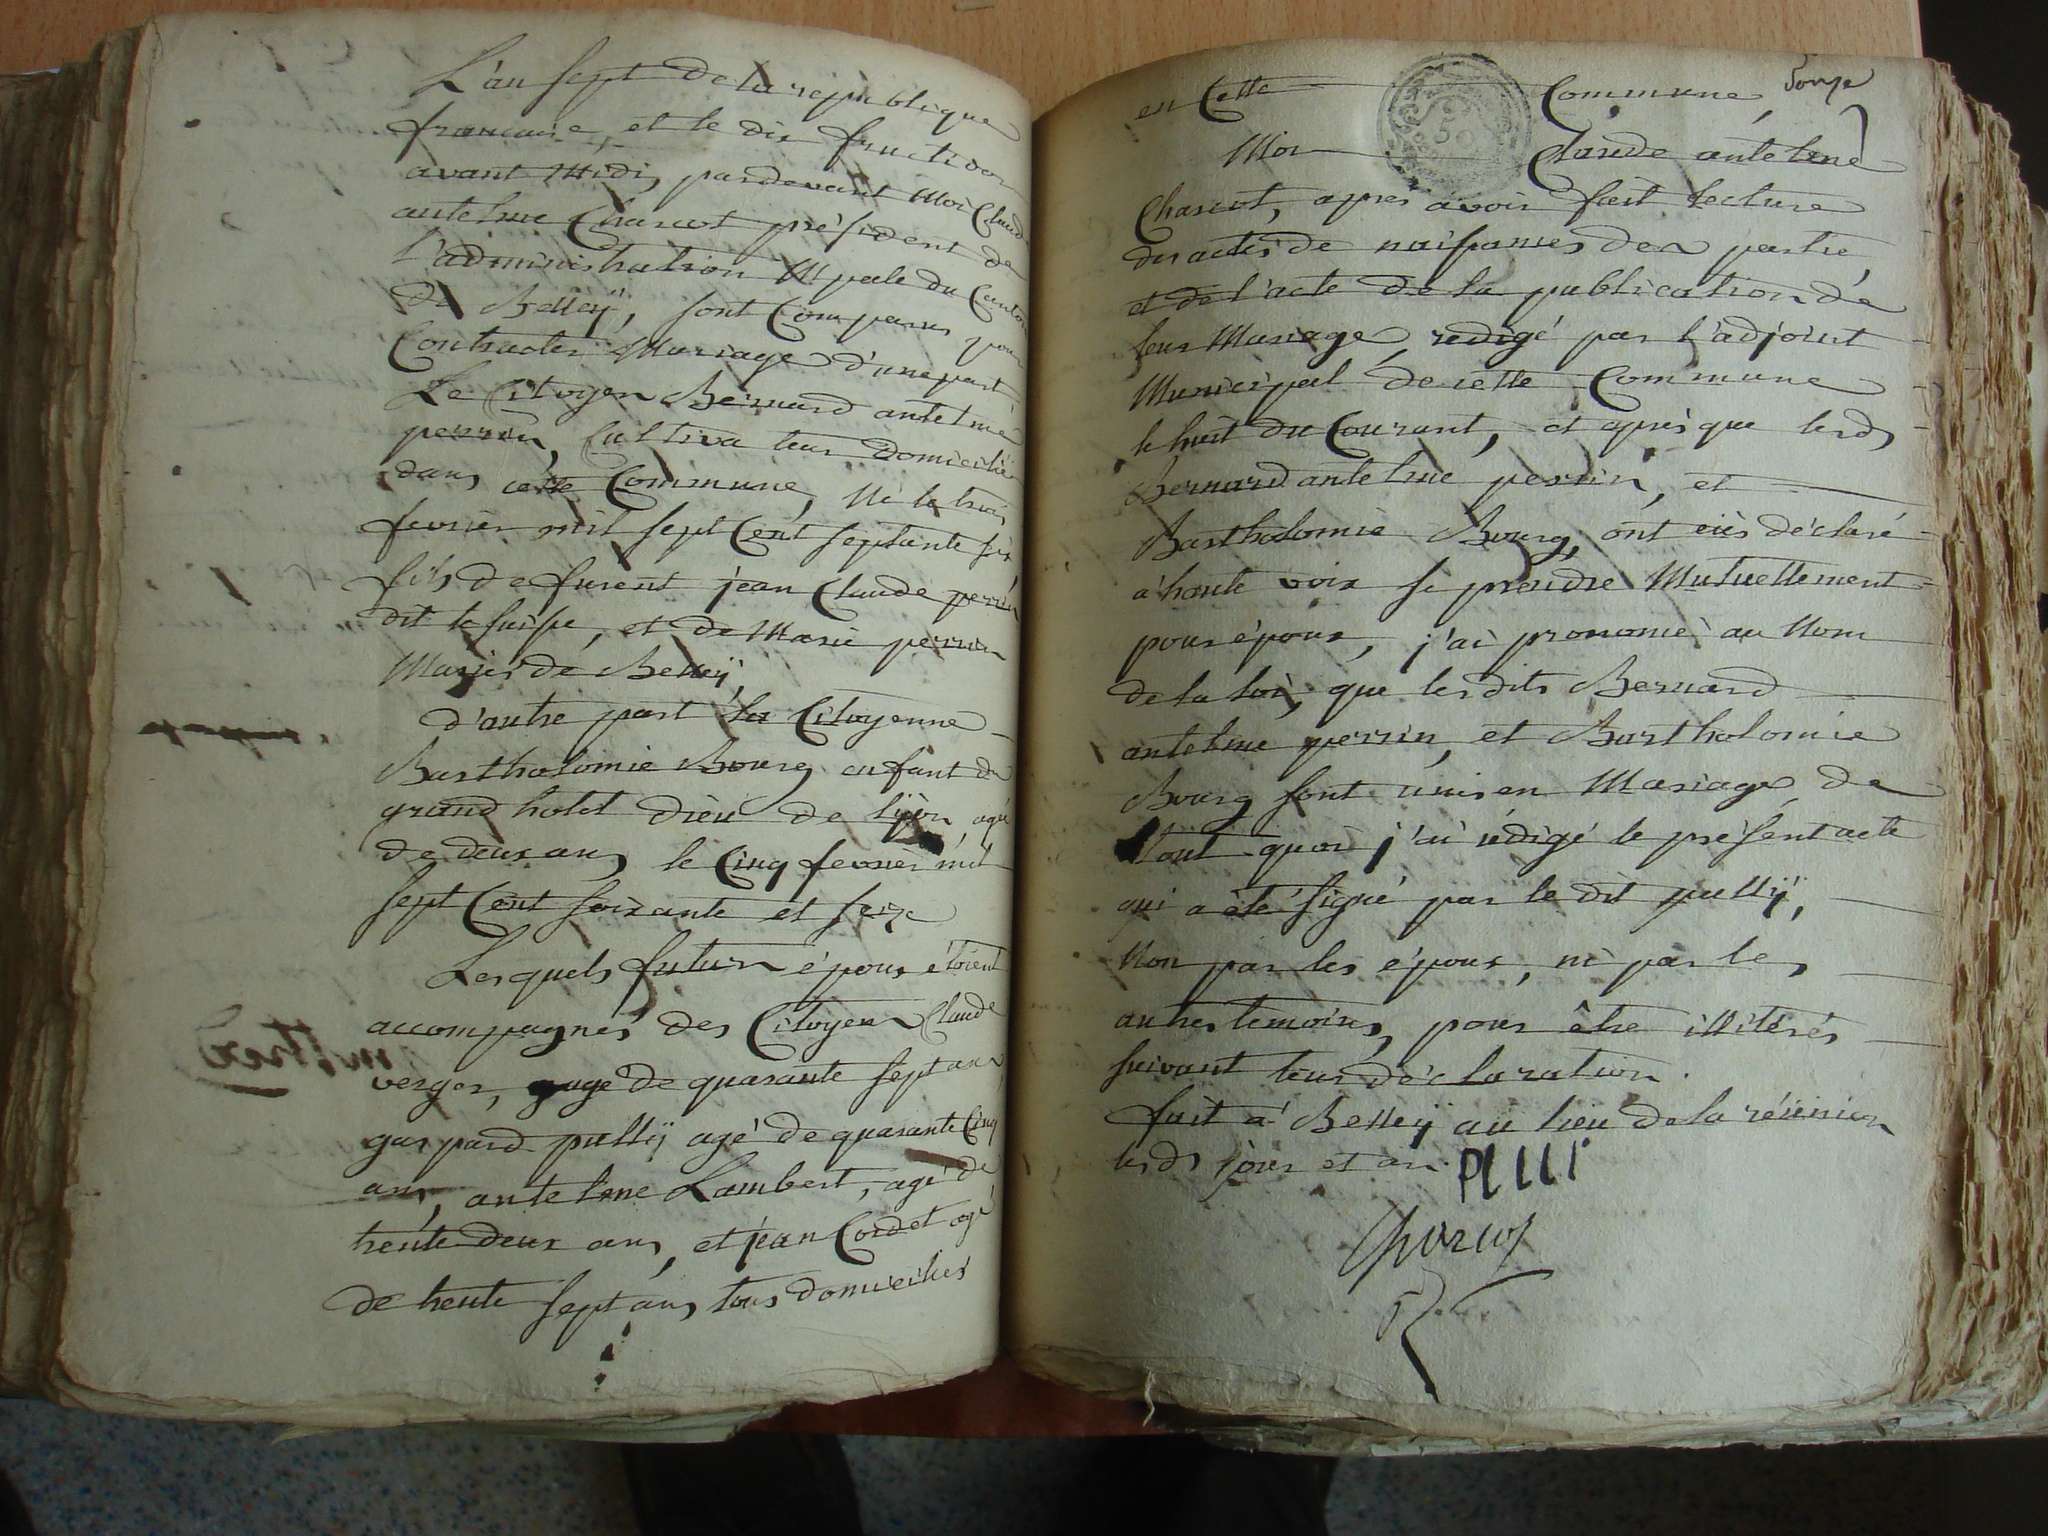 L'an sept de la republique
francaise, et le dix fructidor
avant Midi, pardevant Moi Claude
antelme Charcot président de
l'administration Mpale du Canton
de Belleÿ, sont Comparus pour
Contracter Mariage d'une part
Le Citoyen Bernard antelme
perrin, Cultivateur domicilié
dans cette Commune, Né le trois
fevrier mil sept Cent septante six
fils de furent jean Claude perrin
dit le suisse, et de Marie perrin
Mariés de Belleÿ,
d'autre part la Citoyenne
Bartholomie Bourg enfant du
grand hotel dieu de lÿon, agée
de deux ans le Cinq fevrier mil
sept Cent soixante et seize
Lesquels futurs époux étoient
accompagnés des Citoyens Claude
verger, agé de quarante sept ans
gaspard pulliÿ agé de quarante Cinq
ans, antelme Lambert, agé de
trente deux ans, et jean Cordet agé
de trente sept ans tous domiciliés
en Cette Commune,
Moi Claude antelme
Charcot, apres avoir fait lecture
des actes de naissances des partie,
et de l'acte de la publication de
leur Mariage rédigé par l'adjoint
Municipal de cette Commune
le huit du Courant, et après que lesds
Bernard antelme perrin, et
Bartholomie Bourg, ont eüs déclaré
a haute voix se prendre Mutuellement
pour époux, j'ai prononcé au Nom
de la loi, que lesdits Bernard
antelme perrin, et Bartholomie
Bourg sont unis en Mariage de
tout quoi j'ai rédigé le présent acte
qui a été signé par le dit pulliÿ,
Non par les époux, ni par les
autres temoins, pour être illitérés
suivant leur déclaration.
fait a Belleÿ au lieu de la réünion
lesds jour et an.
Charcot